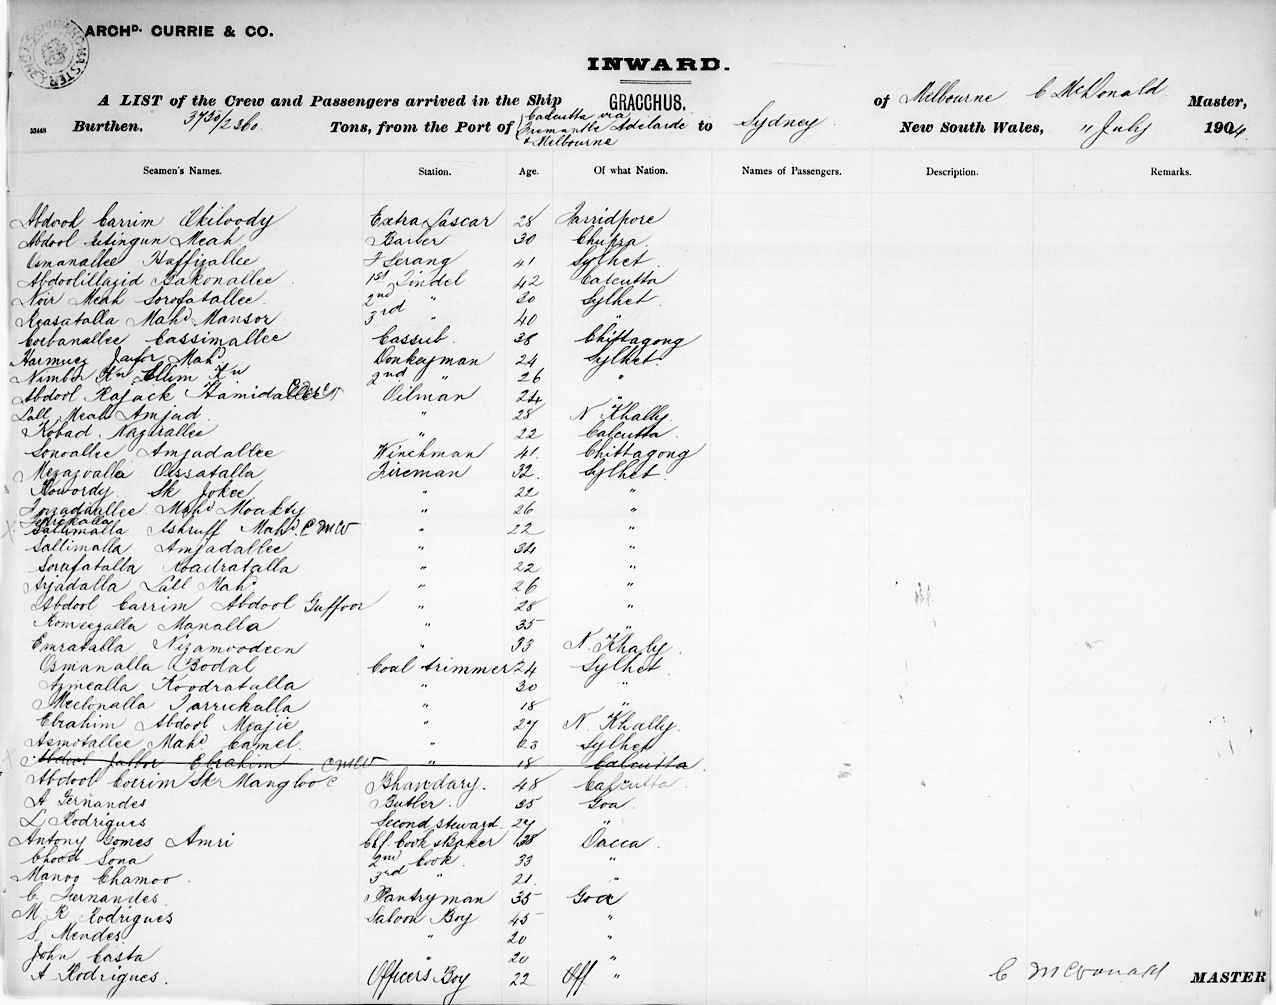 ARCHD. CURRIE & CO.
INWARD.
A LIST of the Crew and Passengers arrived in the Ship GRACCHUS. of Melbourne C McDonald Master,
53448 Burthen. 3730/2360 Tons, from the Port of Calcutta via Fremantle Adelaide & Melbourne to Sydney New South Wales, " July 1904
Seamen's Names. Station. Age. Of what Nation. Names of Passengers. Description. Remarks.
Abdool Carrim Okiloody Extra Lascar 28 Farridpore
Abdool Meah Barber 30 Chupra
Osmanallee Haffizallee Serang 41 Sylhet
Bakonallee 1st Tindel 42 Calcutta
Noir Meah Sorofatallee 2nd " 30 Sylhet
Reasatalla Mahd Mansor 3rd " 40 "
Corbanallee Cassimallee Cassub 38 Chittagong
Harmuez Jaffor Mahd Donkeyman 24 Sylhet
Nimber Kn Ellim Kn 2nd " 26 "
Abdool Rajack Hamidallee Oilman 24 "
Lall Meah Amjad " 28 N Khally
Kobad Nazirallee " 22 Calcutta
Sonoallee Amjadallee Winchman 41 Chittagong
Oissatalla Fireman 32 Sylhet
Howordy Sk Jokee " 22 "
Mahd Moakty " 26 "
Sallimalla Ashruff Mahd C McD " 22 "
Sallimalla Amjadallee " 34 "
Sorafatalla Koadratalla " 22 "
Arjadalla Lall Mahd " 26 "
Abdool Carrim Abdool Guffoor " 28 "
Romeezalla Manalla " 35 "
Emratalla Nizamoodeen " 33 N. Khaly
Osmanalla Abodal Coal trimmer 24 Sylhet
Azmealla Koodratulla " 30 "
Meelonalla Tarrickalla " 18 "
Ebrahim Abdool Meajie " 27 N Khally
Asmotallee Mahd Camel " 23 Sylhet
Abdool Jabbor Ebrahim C McD " 18 Calcutta
Abdool Corrim Sk Mangloo Bhandary 48 Calcutta
A Fernandes Butler 35 Goa
L Rodrigues Second steward 27 "
Antony Gomes Amri Chf. Cook & Baker 38 Dacca
Chood Sona 2nd Cook 33 "
Manoo Chamoo 3rd " 21 "
C. Fernandes Pantryman 35 Goa
M R Rodrigues Saloon Boy 45 "
S. Mendes " 20 "
John Casta " 20 "
A Rodrigues Officers Boy 22 Off "
C McDonald MASTER